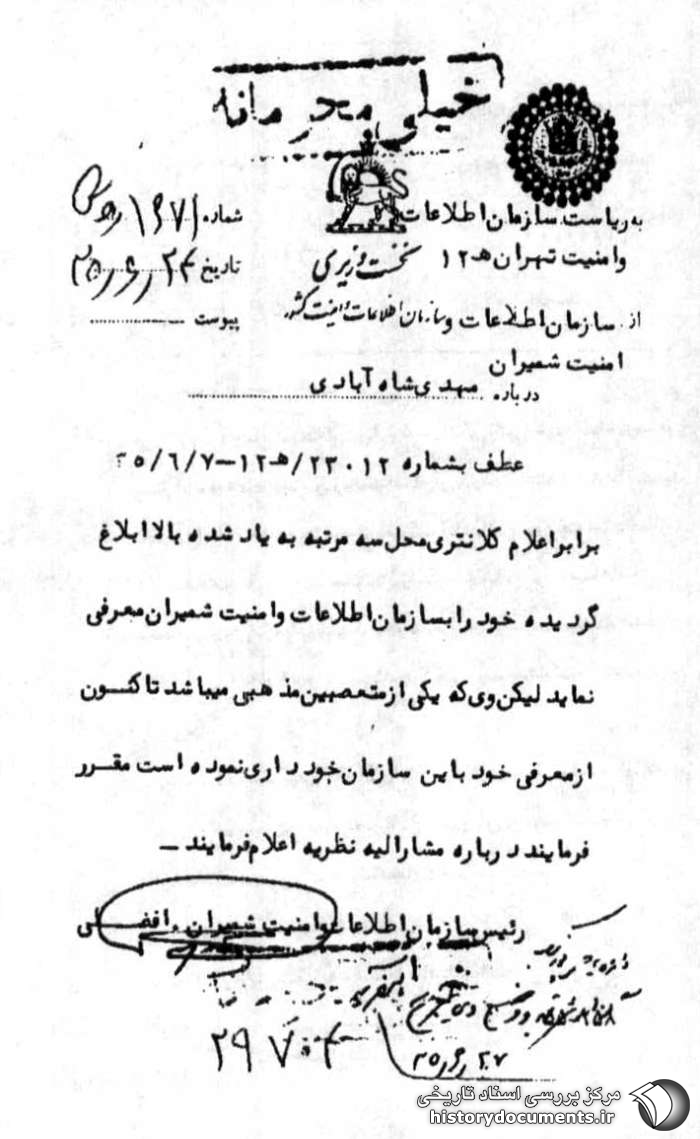 خیلی محرمانه
به ریاست سازمان اطلاعات
و امنیت تهران هـ ۱۲
نخست وزیری
از سازمان اطلاعات و
سازمان اطلاعات و امنیت کشور
امنیت شمیران
شماره
تاریخ ۲۵٫۶٫۲۴
پیوست
درباره مهدی شاه آبادی
عطف بشماره ۲۳۰۱۲/هـ۱۲-۷/۶/۲۵
برابر اعلام کلانتری محل سه مرتبه به یاد شده بالا ابلاغ
گردیده خود را بسازمان اطلاعات و امنیت شمیران معرفی
نماید لیکن وی که یکی از متعصبین مذهبی میباشد تاکنون
از معرفی خود باین سازمان خود داری نموده است مقرر
فرمایند درباره مشارالیه نظریه اعلام فرمایند –
رئیس سازمان اطلاعات و امنیت شمیران . افضلی
۲۹۷۰۳
مرکز بررسی اسناد تاریخی
historydocuments.ir